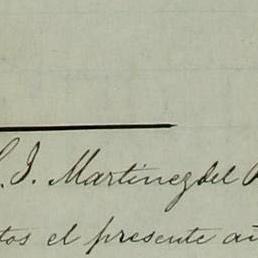 J. Martinez del
tos el presente